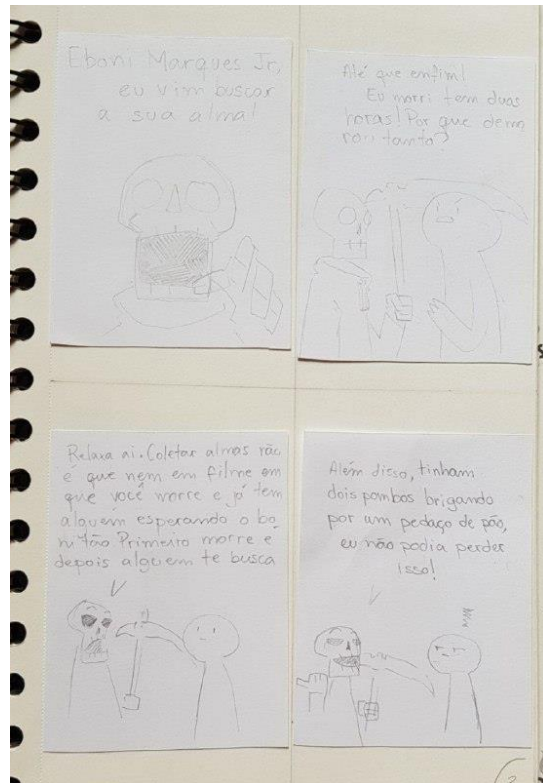 Eboni Marques Jr,
eu vim buscar
a sua alma!
Até que enfim!
Eu morri tem duas
horas! Por que demo
rou tanto?
Relaxa ai. Coletar almas não
é que nem em filme em
que você morre e já tem
alguém esperando o bo
nitão Primeiro morre e
depois alguem te busca
Além disso, tinham
dois pombos brigando
por um pedaço de pão,
eu não podia perder
isso!